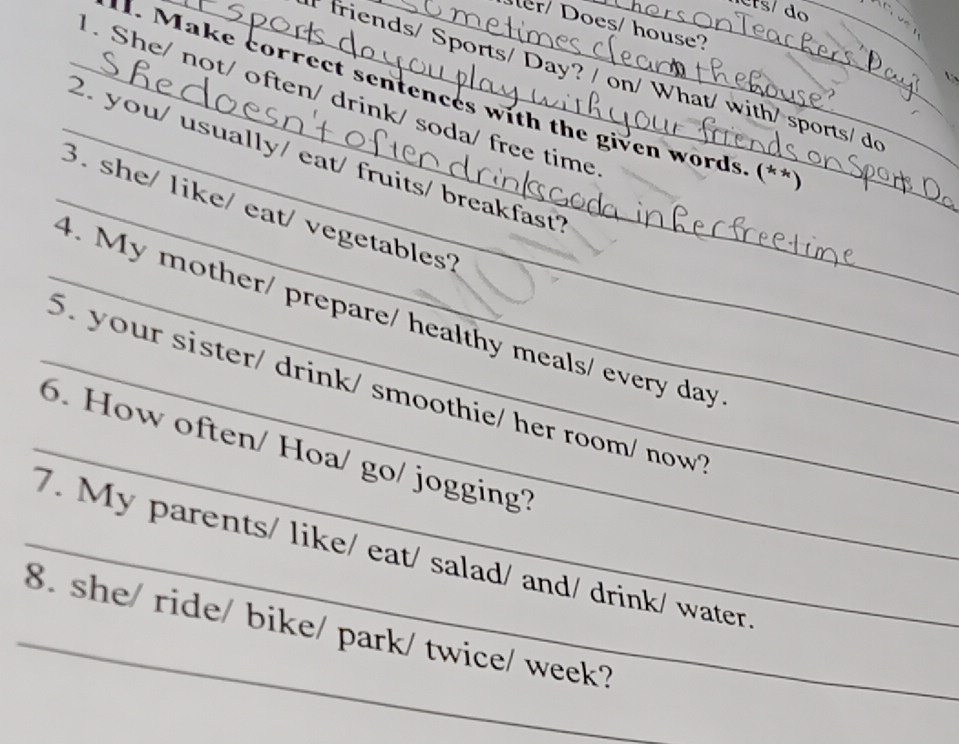 friends/ Sports/ Day? / on/ What/ with/ sports/ do
Does/ house?
on Teachers' Day?
sometimes clean the house?
sports do you play with your friends on Sports Da
III. Make correct sentences with the given words. (**)
1. She/ not/ often/ drink/ soda/ free time.
She doesn't often drink soda in her free time
2. you/ usually/ eat/ fruits/ breakfast?
3. she/ like/ eat/ vegetables?
4. My mother/ prepare/ healthy meals/ every day.
5. your sister/ drink/ smoothie/ her room/ now?
6. How often/ Hoa/ go/ jogging?
7. My parents/ like/ eat/ salad/ and/ drink/ water.
8. she/ ride/ bike/ park/ twice/ week?